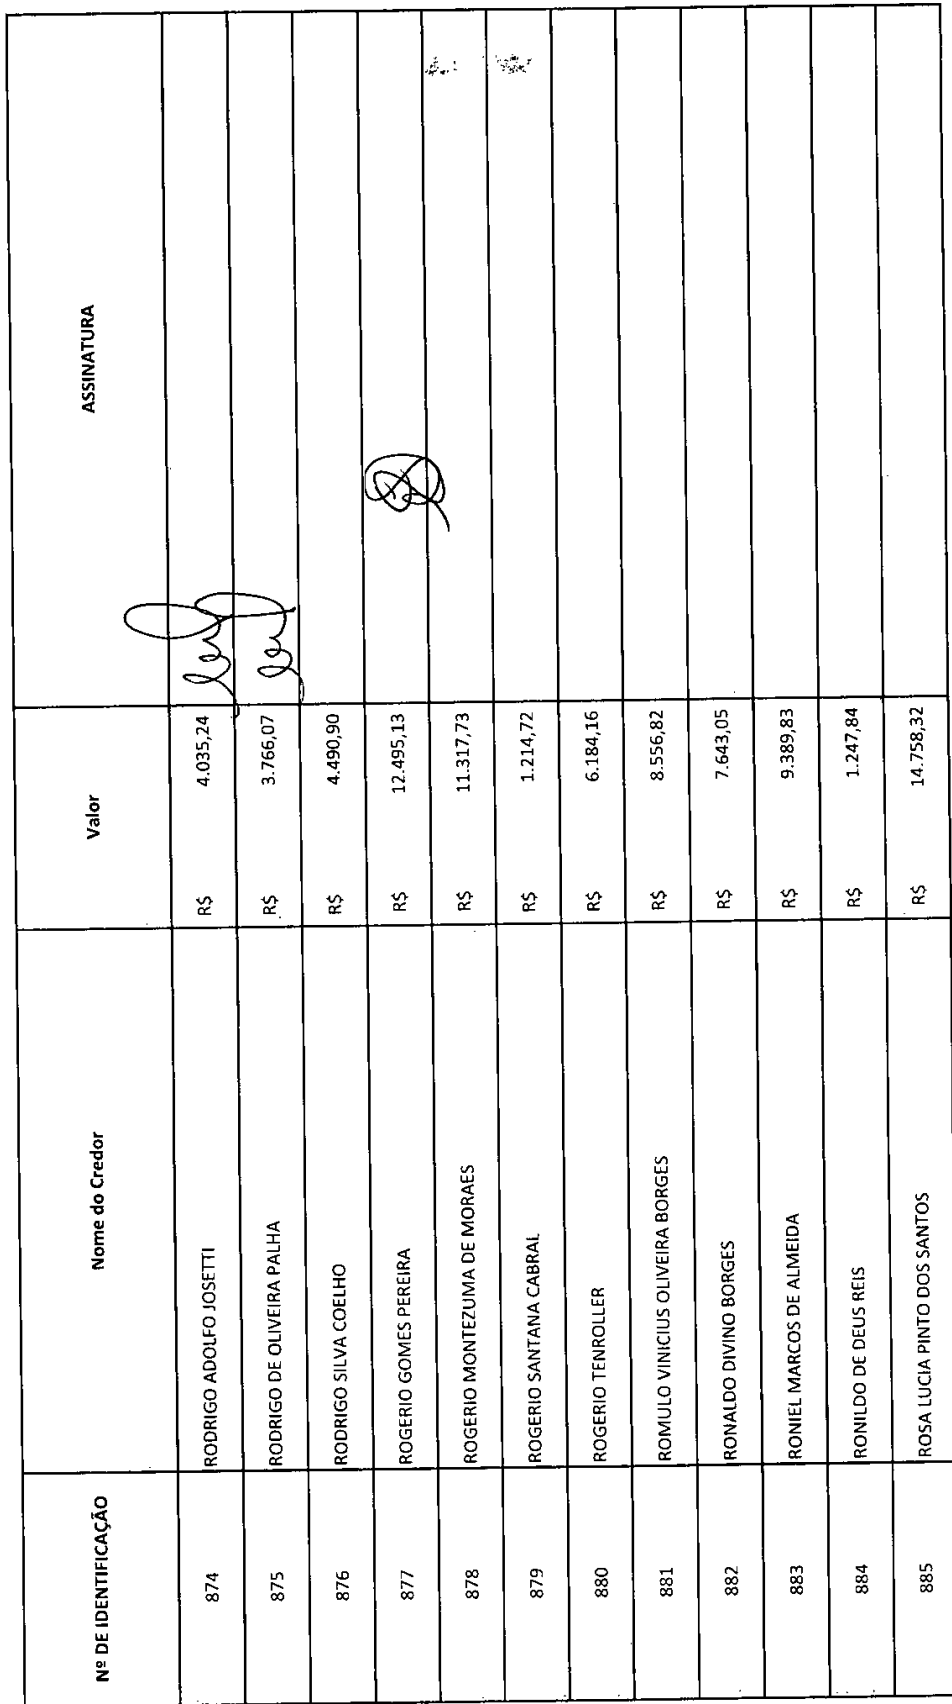 Nº DE IDENTIFICAÇÃO Nome do Credor Valor ASSINATURA
874 RODRIGO ADOLFO JOSETTI R$ 4.035,24
875 RODRIGO DE OLIVEIRA PALHA R$ 3.766,07
876 RODRIGO SILVA COELHO R$ 4.490,90
877 ROGERIO GOMES PEREIRA R$ 12.495,13
878 ROGERIO MONTEZUMA DE MORAES R$ 11.317,73
879 ROGERIO SANTANA CABRAL R$ 1.214,72
880 ROGERIO TENROLLER R$ 6.184,16
881 ROMULO VINICIUS OLIVEIRA BORGES R$ 8.556,82
882 RONALDO DIVINO BORGES R$ 7.643,05
883 RONIEL MARCOS DE ALMEIDA R$ 9.389,83
884 RONILDO DE DEUS REIS R$ 1.247,84
885 ROSA LUCIA PINTO DOS SANTOS R$ 14.758,32